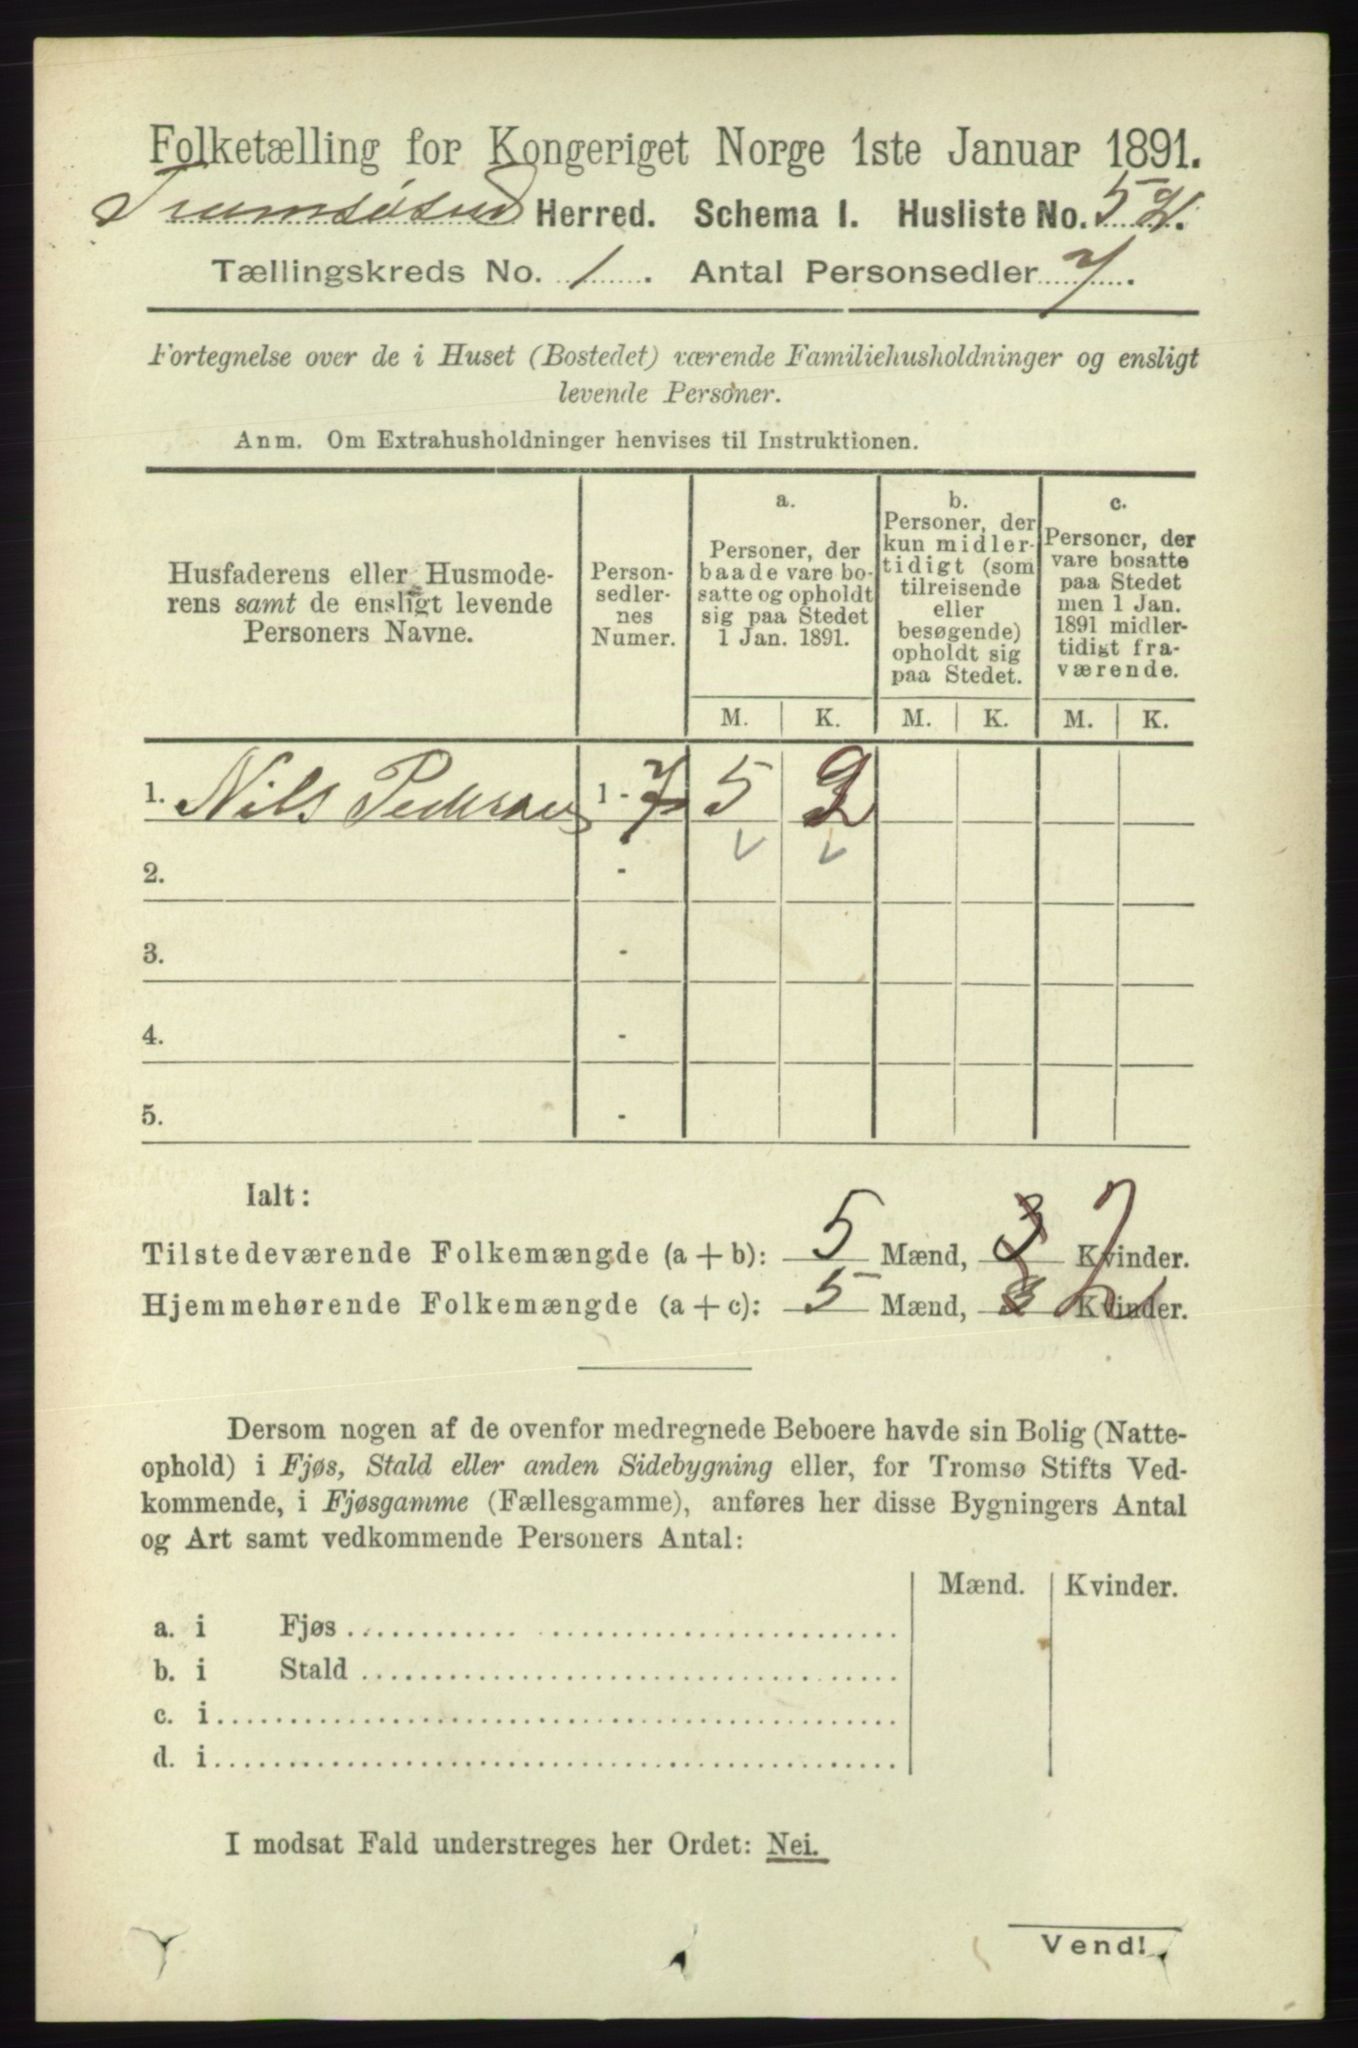 Folketælling for Kongeriget Norge 1ste Januar 1891.
Tromsøsund Herred. Schema I. Husliste No. 52.
Tællingskreds No. 1. Antal Personsedler 7.
Fortegnelse over de i Huset (Bostedet) værende Familiehusholdninger og ensligt
levende Personer.
Anm. Om Extrahusholdninger henvises til Instruktionen.
Husfaderens eller Husmode-
rens samt de ensligt levende
Personers Navne.
Person-
sedler-
nes
Numer.
a.
Personer, der
baade vare bo-
satte og opholdt
sig paa Stedet
1 Jan. 1891.
b.
Personer, der
kun midler-
tidigt (som
tilreisende
eller
besøgende)
opholdt sig
paa Stedet.
c.
Personer, der
vare bosatte
paa Stedet
men 1 Jan.
1891 midler-
tidigt fra-
værende.
M. K. M. K. M. K.
1. Nils Pedersen 1 - 7 5 2
2. -
3. -
4. -
5. -
Ialt:
Tilstedeværende Folkemængde (a + b): 5 Mænd, 3 2 Kvinder.
Hjemmehørende Folkemængde (a + c): 5 Mænd, 3 2 Kvinder.
Dersom nogen af de ovenfor medregnede Beboere havde sin Bolig (Natte-
ophold) i Fjøs, Stald eller anden Sidebygning eller, for Tromsø Stifts Ved-
kommende, i Fjøsgamme (Fællesgamme), anføres her disse Bygningers Antal
og Art samt vedkommende Personers Antal:
Mænd. Kvinder.
a. i Fjøs
b. i Stald
c. i
d. i
I modsat Fald understreges her Ordet: Nei.
Vend!